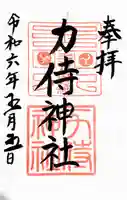 奉拝
力侍神社
令和六年五月五日